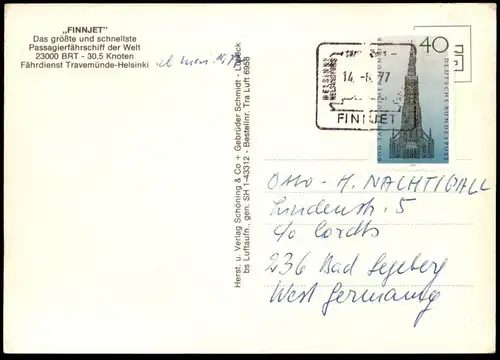 „FINNJET"
Das größte und schnellste
Passagierfährschiff der Welt
23000 BRT - 30,5 Knoten
Fährdienst Travemünde-Helsinki
Herst. u. Verlag Schöning & Co + Gebrüder Schmidt - Lübeck
bs Luftaufn., gen. SH 1-43312 - Bestellnr. Tra Luft 6988
HELSINKI
HELSINGFORS
14.-6.77
FINNJET
40
DEUTSCHE BUNDESPOST
600 JAHRE ULMER MÜNSTER
Otto-H. NACHTIGALL
Lindenstr. 5
c/o Cordts
236 Bad Segeberg
West Germany